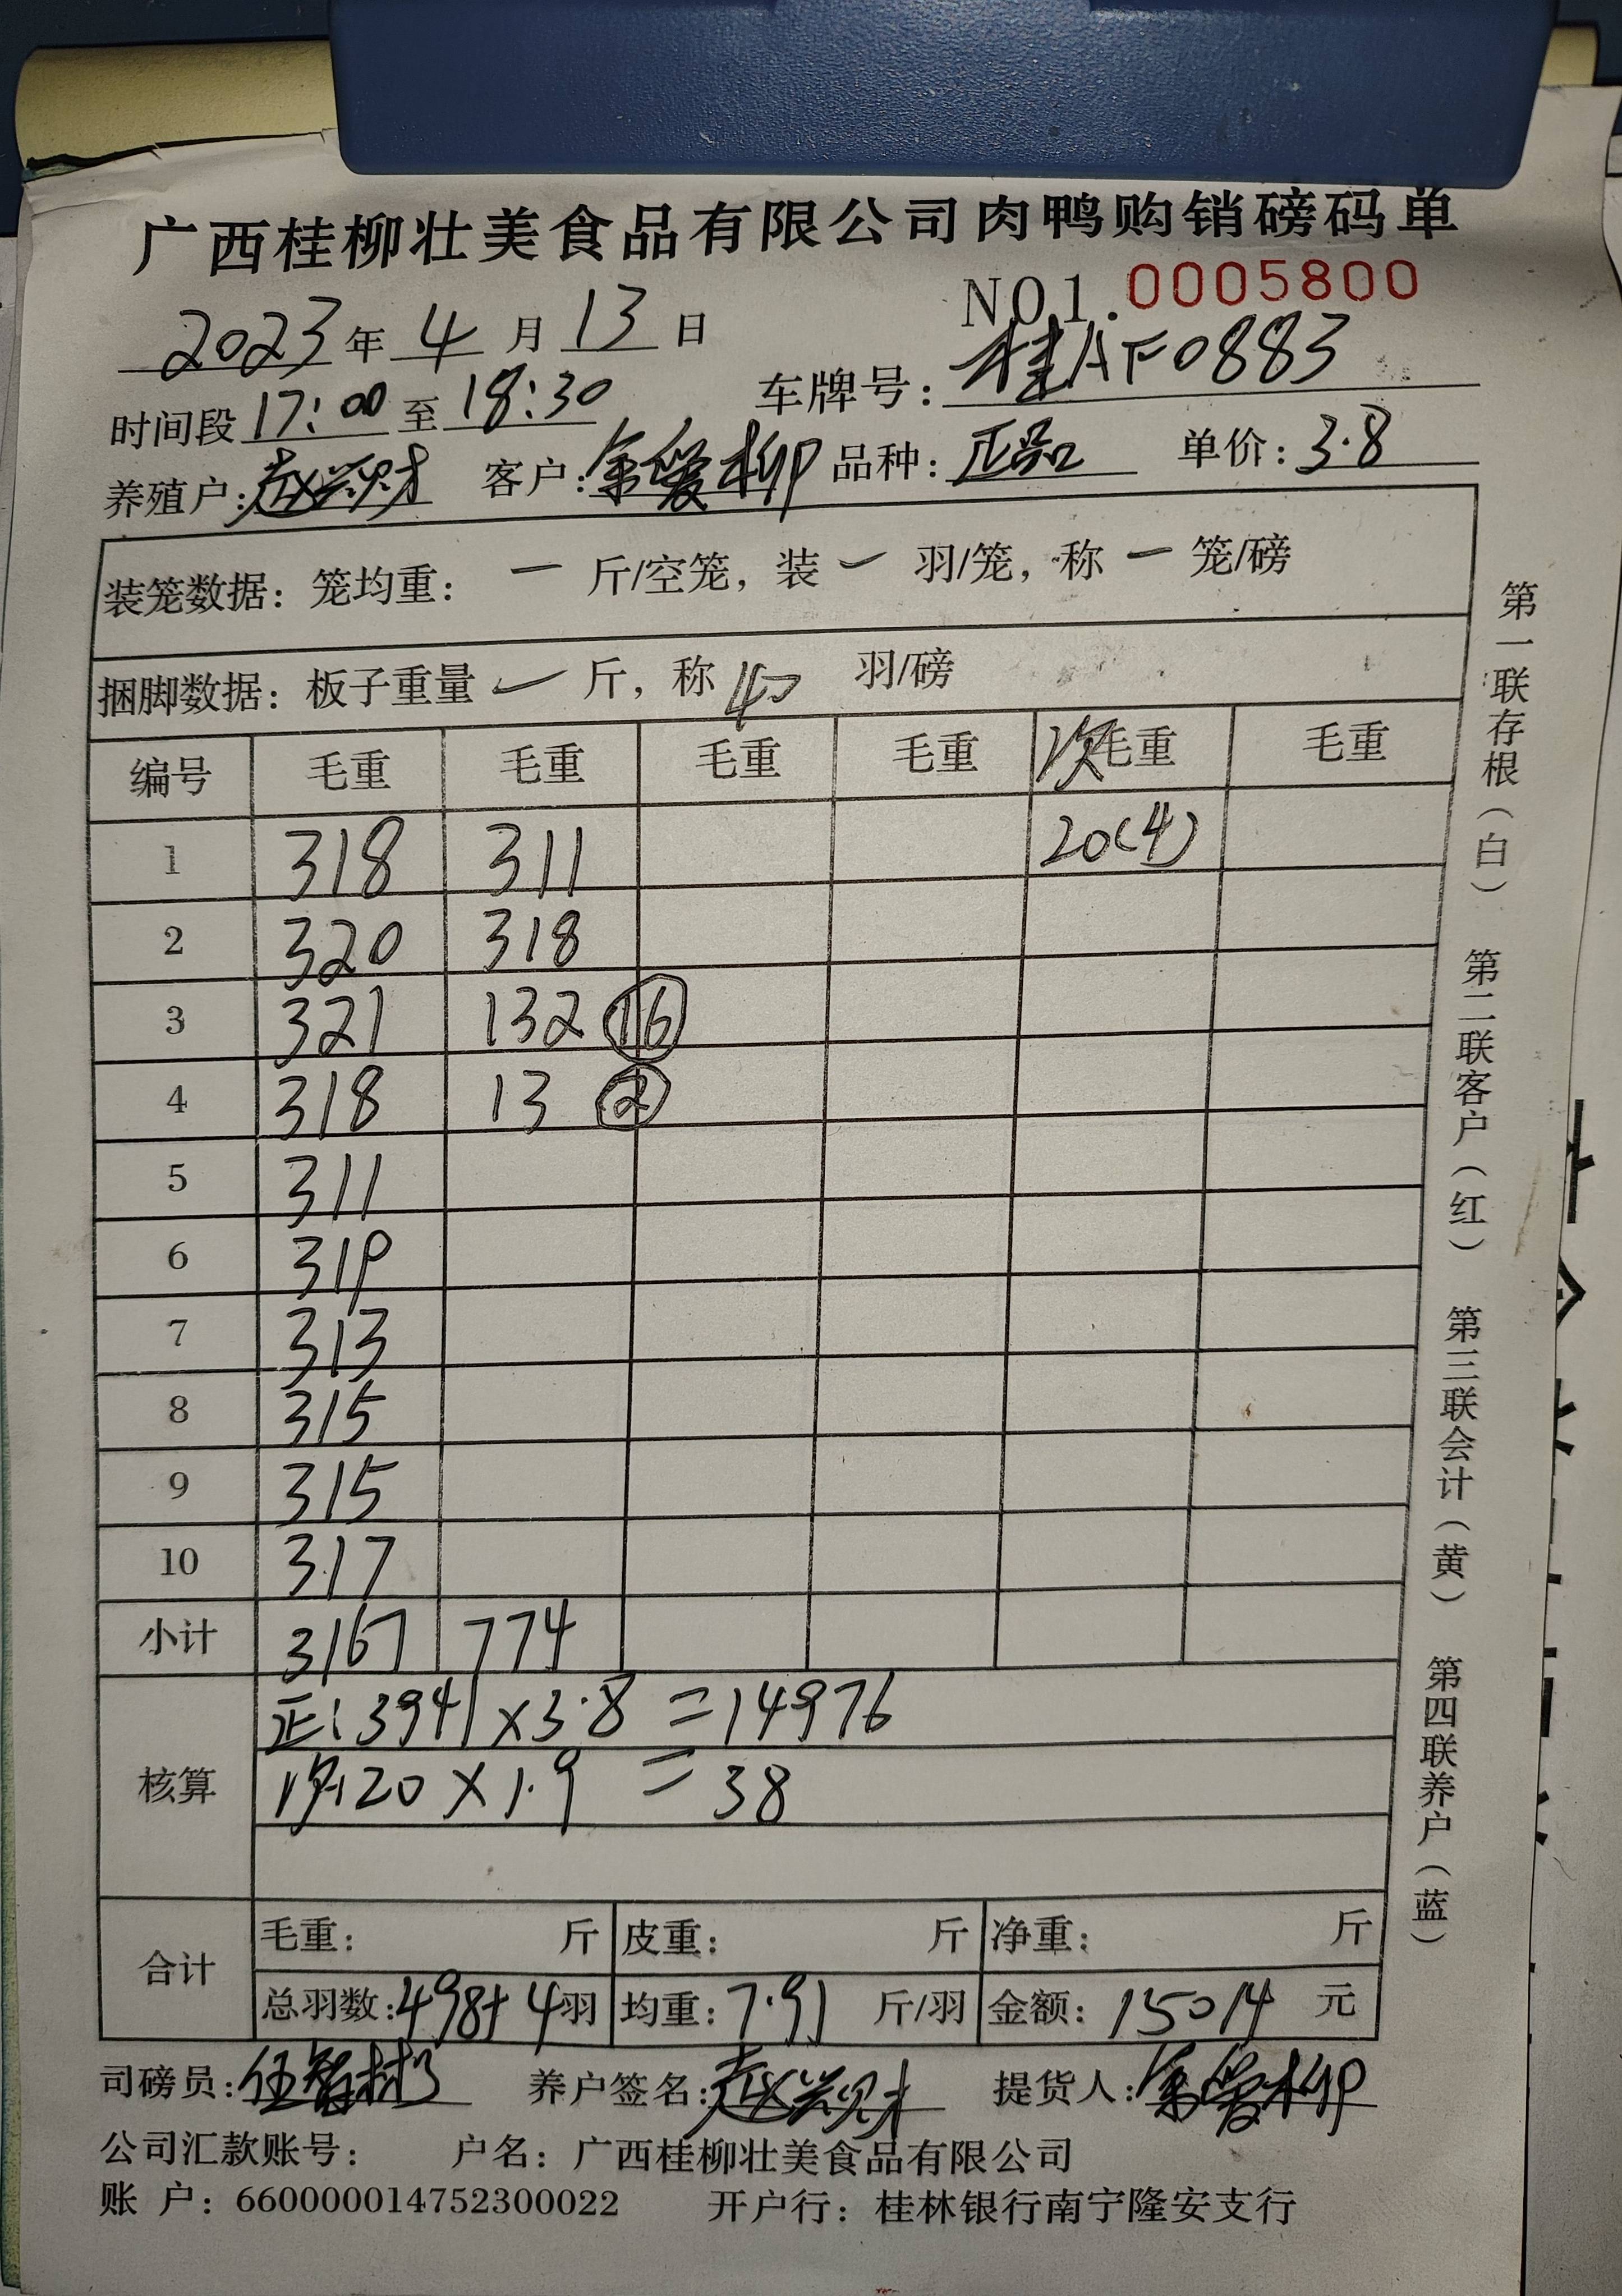 广西桂柳壮美食品有限公司肉鸭购销磅码单
NO1.0005800
2023年4月13日
时间段17:00至18:30 车牌号:桂AF0883
养殖户:赵兴财 客户:余爱柳 品种:正品 单价:3.8
装笼数据:笼均重: 一 斤/空笼,装 一 羽/笼,称 一 笼/磅
捆脚数据:板子重量 一 斤,称 40 羽/磅
编号 毛重 毛重 毛重 毛重 次毛重 毛重
1 318 311 20(4)
2 320 318
3 321 132 16
4 318 13 2
5 311
6 319
7 313
8 315
9 315
10 317
小计 3167 774
核算 正:3941×3.8=14976
次:20×1.9=38
合计 毛重: 斤 皮重: 斤 净重: 斤
总羽数:498+4羽 均重:7.91斤/羽 金额:15014元
司磅员:伍智彬 养户签名:赵兴财 提货人:余爱柳
公司汇款账号: 户名:广西桂柳壮美食品有限公司
账 户:660000014752300022 开户行:桂林银行南宁隆安支行
第一联存根(白) 第二联客户(红) 第三联会计(黄) 第四联养户(蓝)